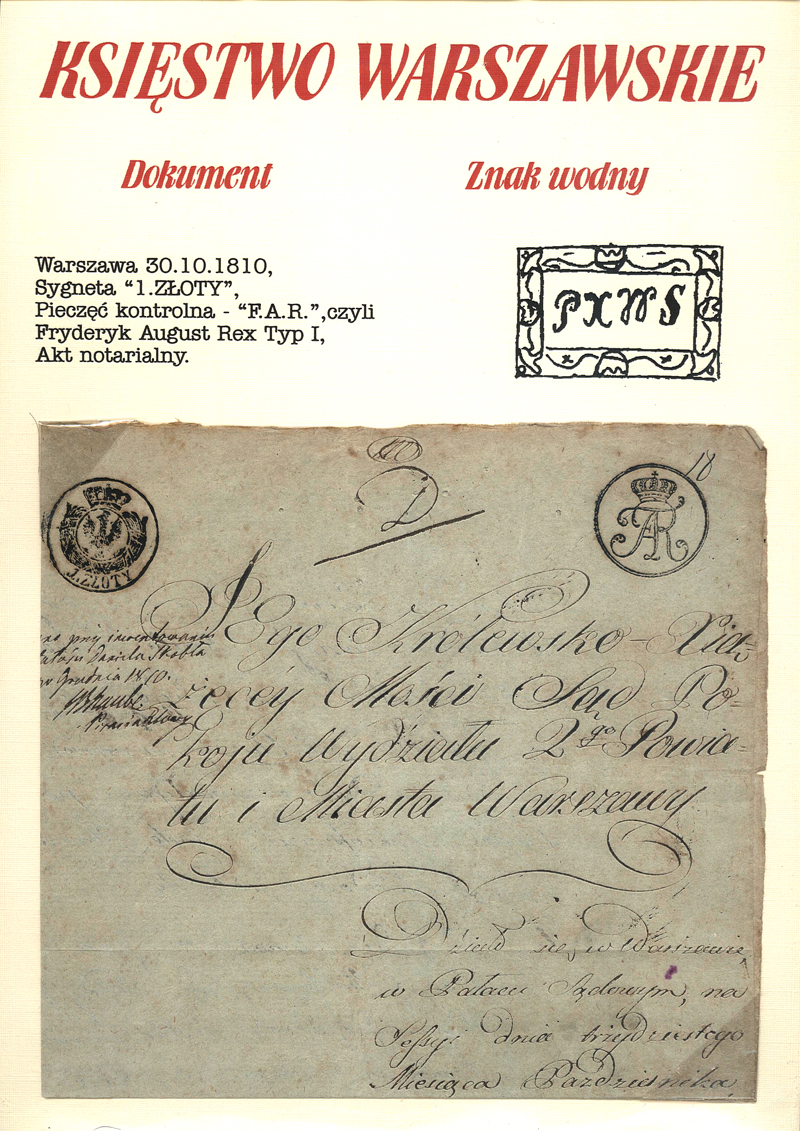 KSIĘSTWO WARSZAWSKIE
Dokument
Znak wodny
Warszawa 30.10.1810,
Sygneta “1.ZŁOTY”,
Pieczęć kontrolna - “F.A.R.”,czyli
Fryderyk August Rex Typ I,
Akt notarialny.
PXWS
D
18
1.ZŁOTY
FAR
JEgo Królewsko-Xią-
żęcey Mości Sąd Po-
koju Wydziału 2go Powia-
tu i Miasta Warszawy
przy inwentowaniu
Daniela
Grudnia 1810.
Działo się w Warszawie,
w Pałacu Sądowym, na
Sessyi dnia trzydziestego
Miesiąca Października